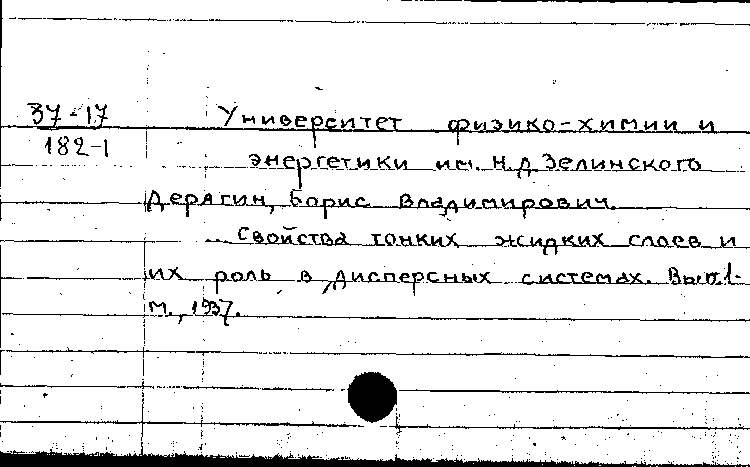 37-17
182-1
Университет физико-химии и
энергетики им. Н.Д. Зелинского
Дерягин, Борис Владимирович.
... Свойства тонких жидких слоев и
их роль в дисперсных системах. Вып.1-
М., 1937.